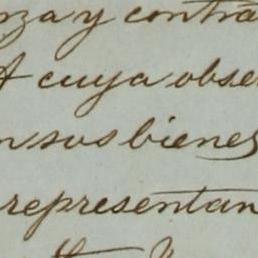 nza y contra
A cuya obse
n sus bienes
representan